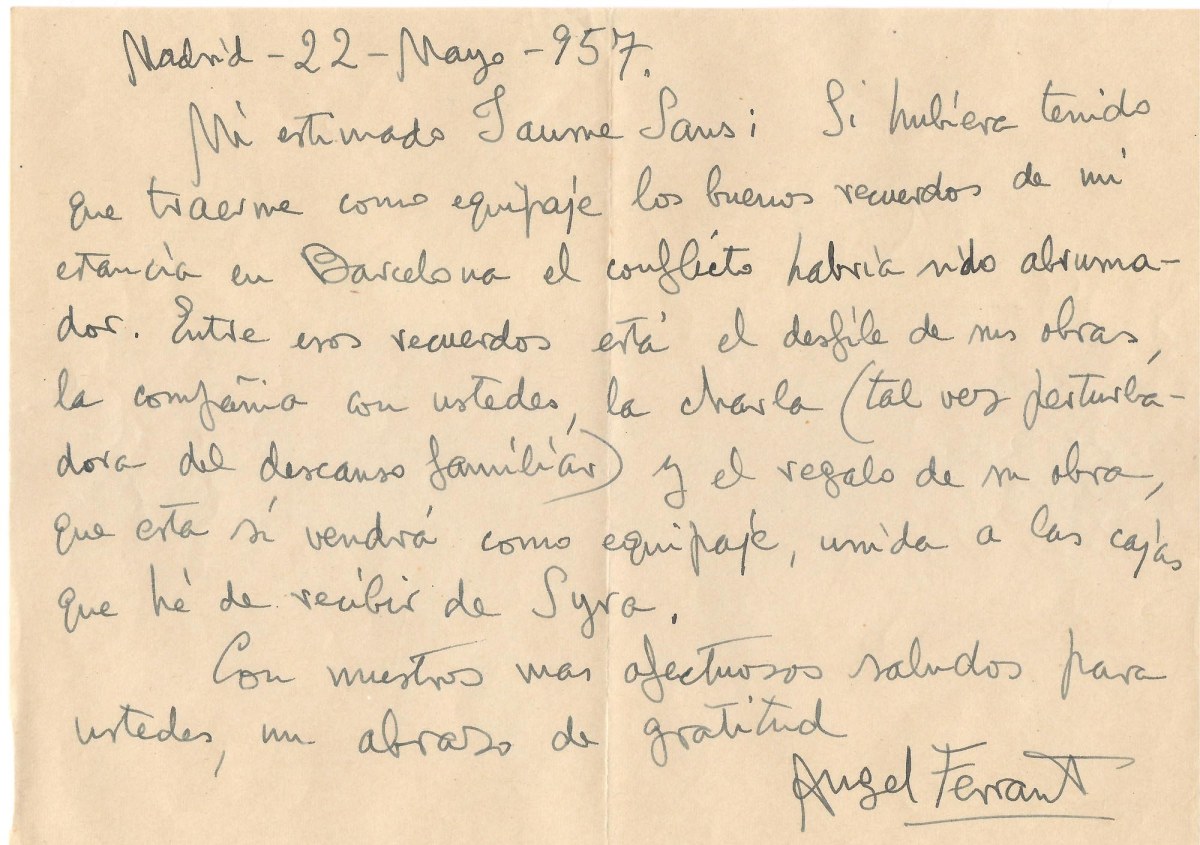 Madrid - 22 - Mayo - 957.
Mi estimado Jaume Sans: Si hubiera tenido
que traerme como equipaje los buenos recuerdos de mi
estancia en Barcelona el conflicto habría sido abruma-
dor. Entre esos recuerdos está el desfile de sus obras,
la compañia con ustedes, la charla (tal vez perturba-
dora del descanso familiar) y el regalo de su obra,
que esta sí vendrá como equipaje, unida a las cajas
que hé de recibir de Syra.
Con nuestros mas afectuosos saludos para
ustedes, un abrazo de gratitud
Angel Ferrant